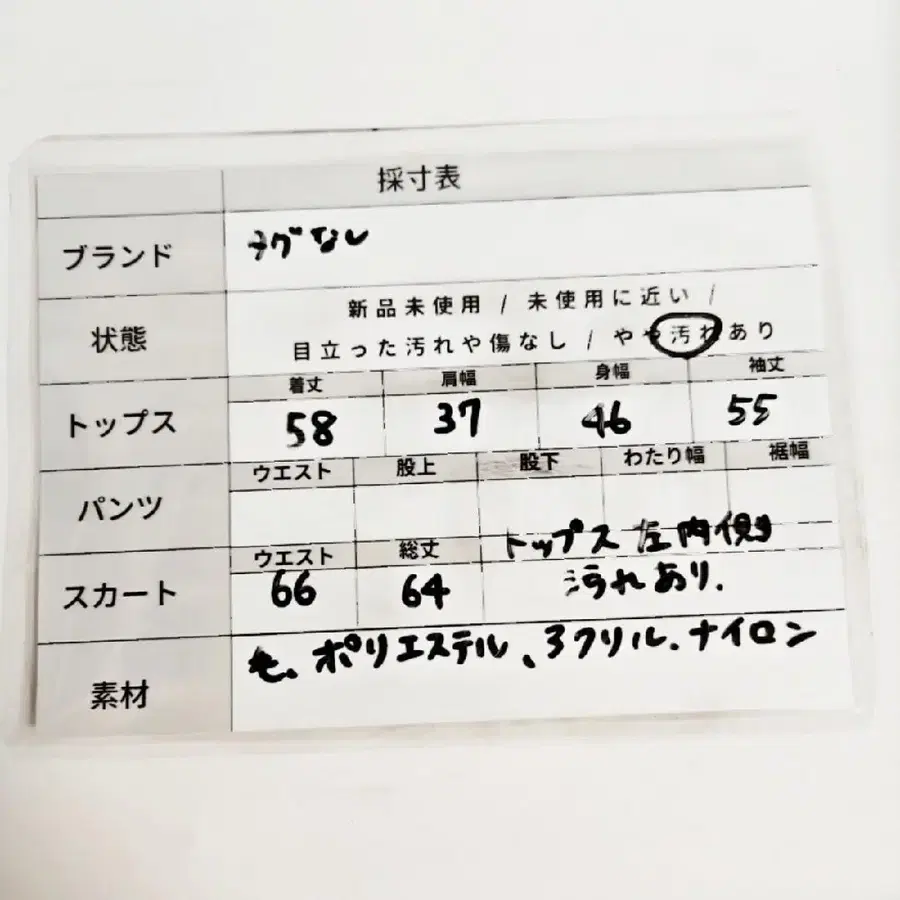 採寸表
ブランド タグなし
新品未使用 / 未使用に近い /
状態 目立った汚れや傷なし / やや汚れあり
着丈 肩幅 身幅 袖丈
トップス 58 37 46 55
ウエスト 股上 股下 わたり幅 裾幅
パンツ
トップス 左内側
ウエスト 総丈
スカート 66 64 汚れあり.
毛、ポリエステル、アクリル.ナイロン
素材